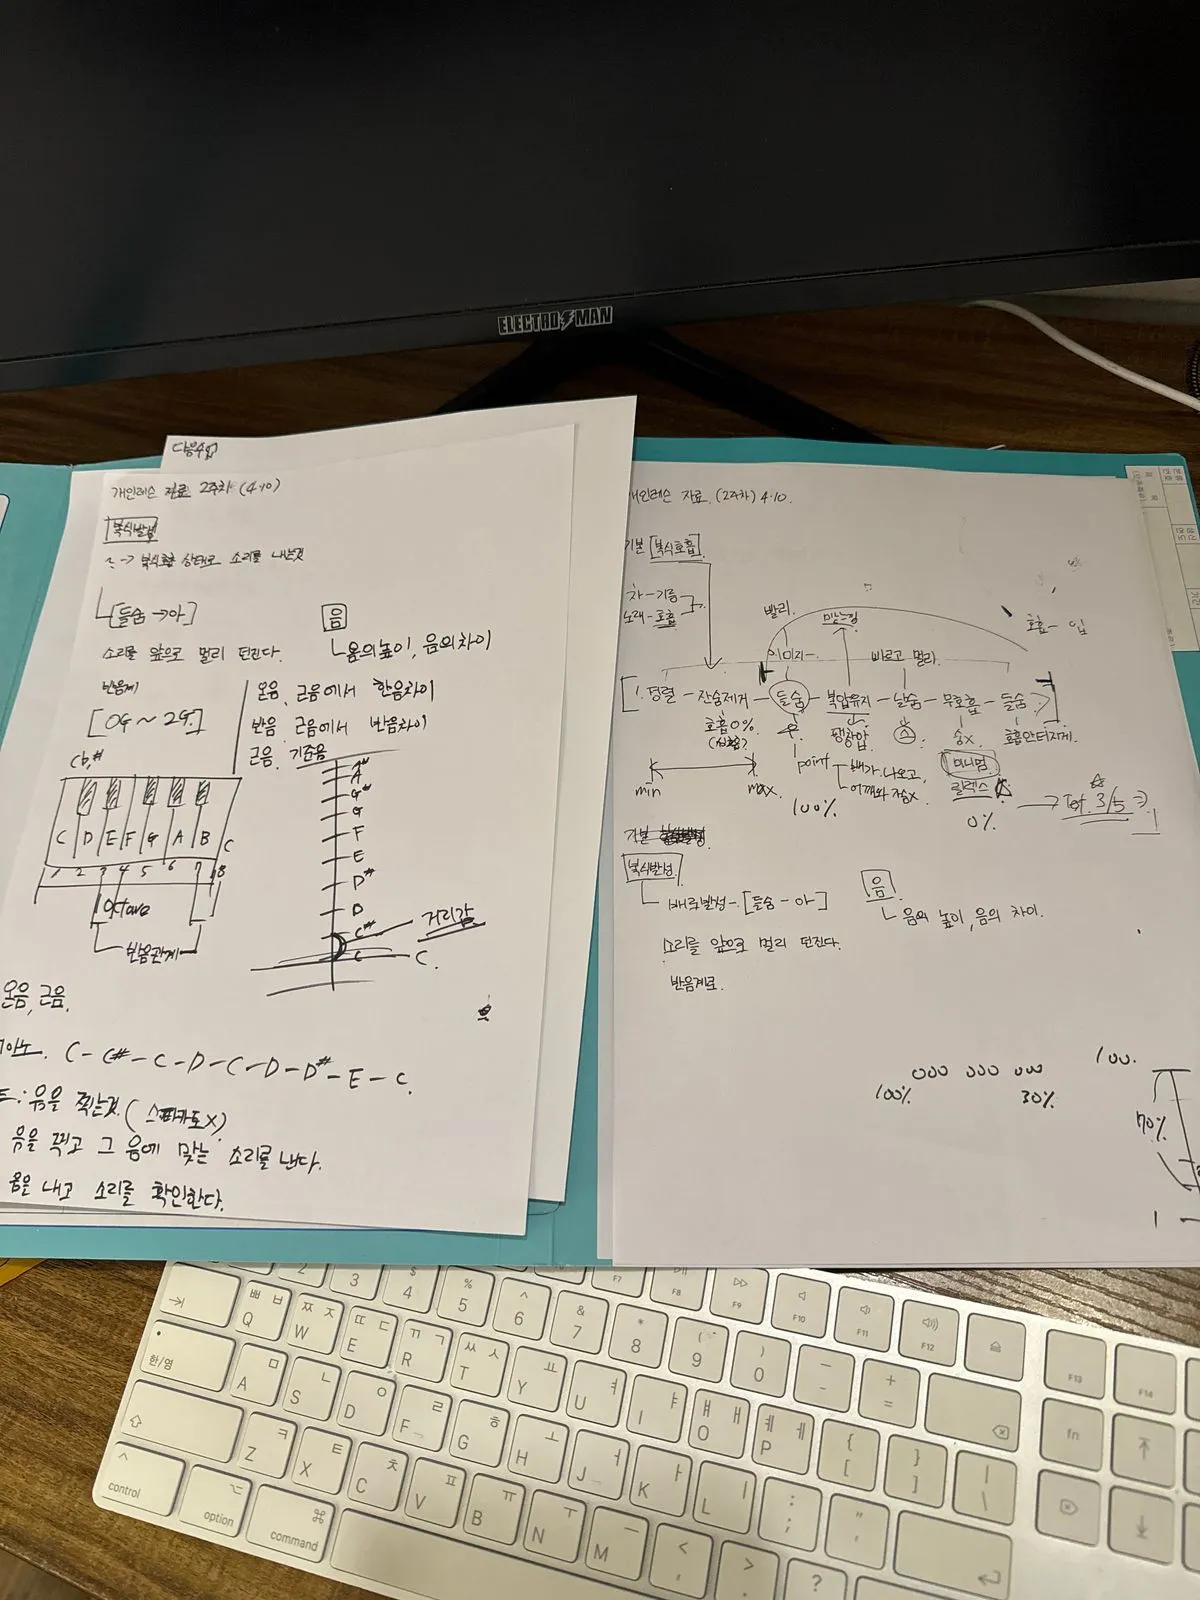 ELECTRO MAN
다음수업
개인레슨 자료 2주차 (4.10)
복식발성
→ 복식호흡 상태로 소리를 내는것
[들숨 → 아]
소리를 앞으로 멀리 던진다.
반음계
[0G ~ 2G]
음
음의 높이, 음의 차이
온음. 근음에서 한음차이
반음. 근음에서 반음차이
근음. 기준음
A#
A
G#
G
F
E
D#
D
C#
C
C.
거리감
Cb,#
C D E F G A B C
1 2 3 4 5 6 7 8
Octave
반음관계
온음, 근음.
C - C# - C - D - C - D - D# - E - C.
: 음을 찍는것. (스타카토X)
음을 찍고 그 음에 맞는 소리를 낸다.
음을 내고 소리를 확인한다.
개인레슨 자료. (2주차) 4.10.
기본 [복식호흡]
차 - 기름
노래 - 호흡
빨리.
이미지
빠르고 멀리.
호흡 - 입
1. 정렬 - 잔숨제거 - 들숨 - 복압유지 - 날숨 - 무호흡 - 들숨
호흡0%
팽창압
숨X.
호흡안터지게.
min
max.
100%
point
배가 나오고,
어깨와 가슴X.
미니멈
릴렉스
0%
3/5
기본
복식발성.
배로발성 - [들숨 - 아]
소리를 앞으로 멀리 던진다.
반음계로.
음.
음의 높이, 음의 차이.
000 000 000
100%
30%
100.
70%
1
tab
한/영
control
option
command
Q W E R T Y U I O P
A S D F G H J K L
Z X C V B N M
2 3 4 5 6 7 8 9 0
F7 F8 F9 F10 F11 F12 F13 F14
fn